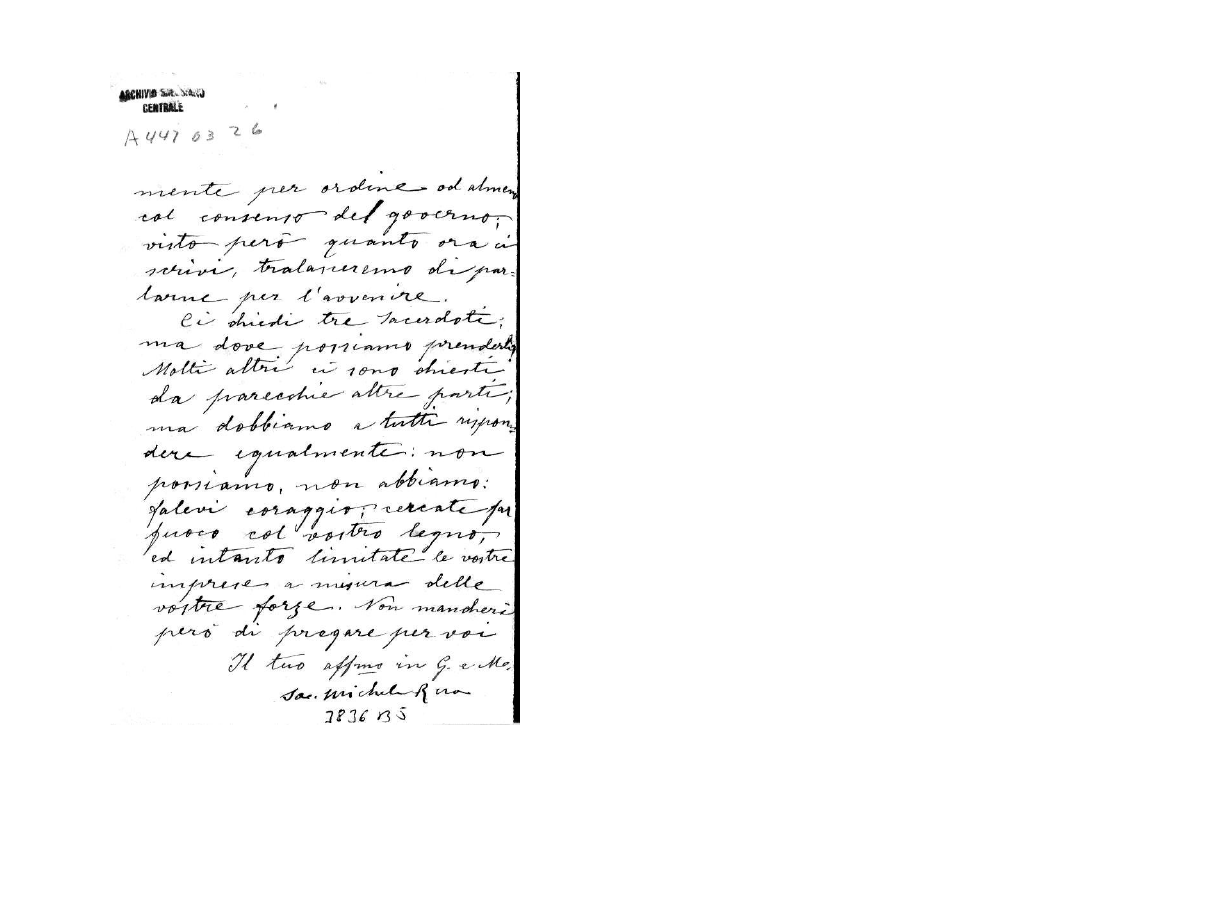 ARCHIVIO SALESIANO
CENTRALE
A447 03 26
mente per ordine od almeno
col consenso del governo;
visto però quanto ora ci
scrivi, tralasceremo di par=
larne per l'avvenire.
Ci chiedi tre Sacerdoti;
ma dove possiamo prenderli?
Molti altri ci sono chiesti
da parecchie altre parti;
ma dobbiamo a tutti rispon=
dere egualmente: non
possiamo, non abbiamo:
fatevi coraggio; cercate far
fuoco col vostro legno,
ed intanto limitate le vostre
imprese a misura delle
vostre forze. Non mancherò
però di pregare per voi
Il tuo affmo in G. e Ma.
Sac. Michele Rua
3836 B5